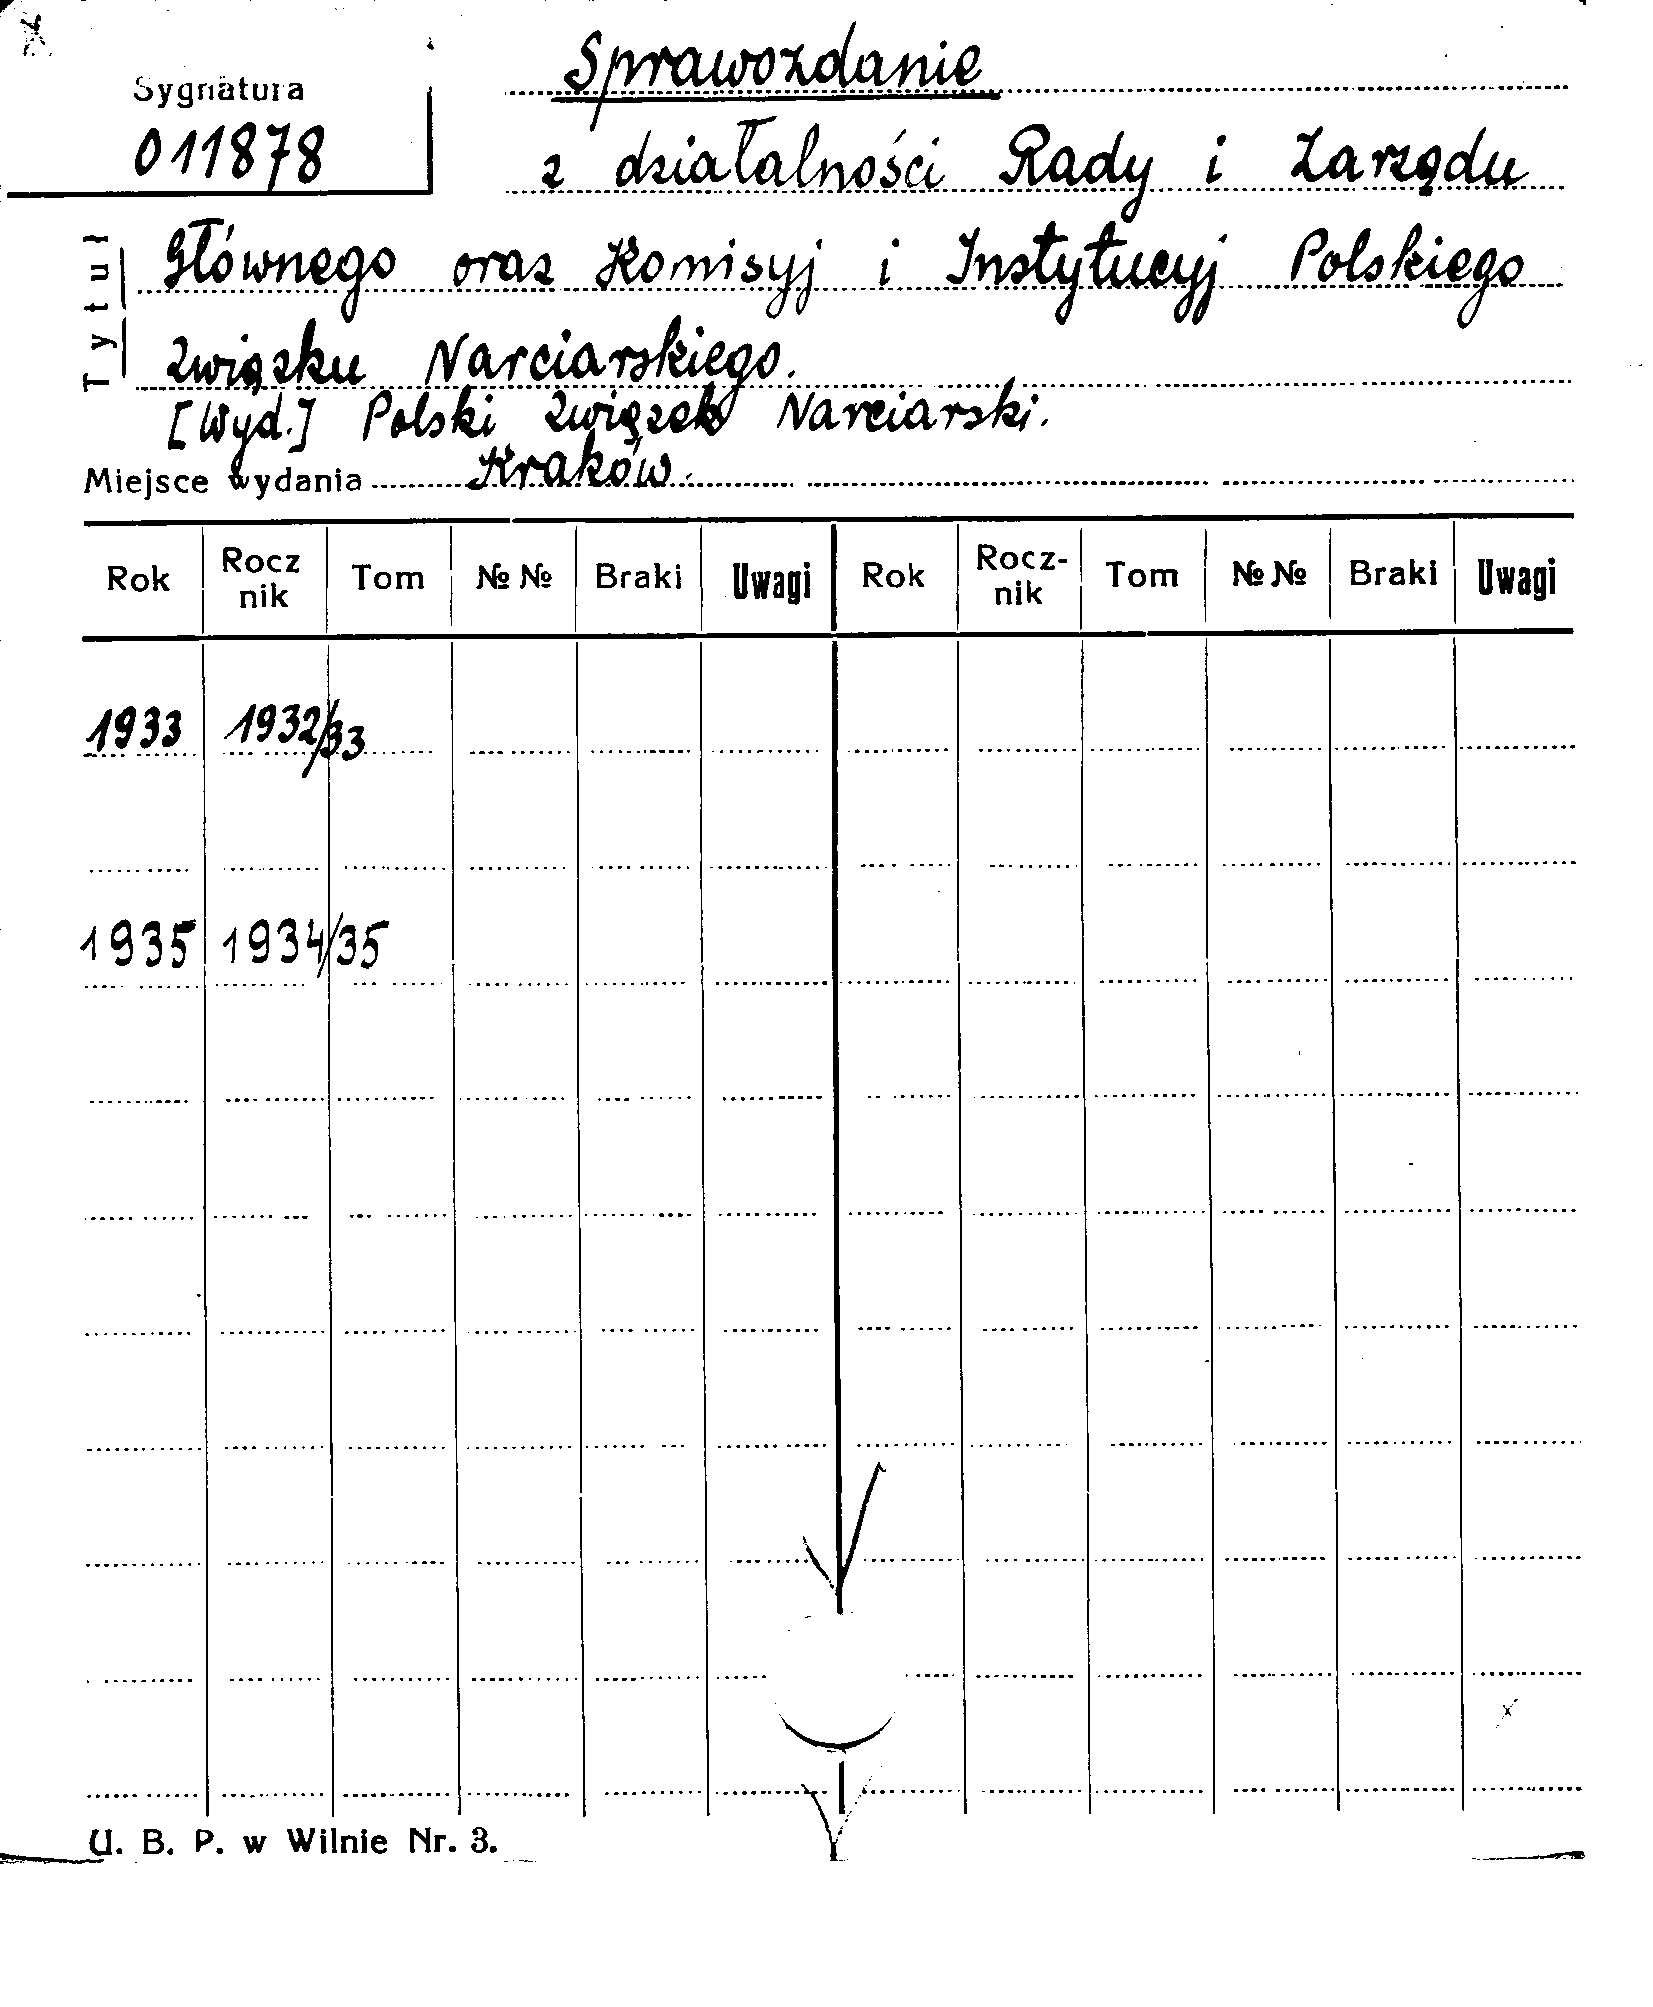 Sygnatura
011878
Sprawozdanie
z działalności Rady i Zarządu
Tytuł
Głównego oraz Komisyj i Instytucyj Polskiego
Związku Narciarskiego.
[Wyd.] Polski Związek Narciarski.
Miejsce wydania Kraków.
Rok Rocz nik Tom №№ Braki Uwagi Rok Rocz-nik Tom №№ Braki Uwagi
1933 1932/33
1935 1934/35
U. B. P. w Wilnie Nr. 3.